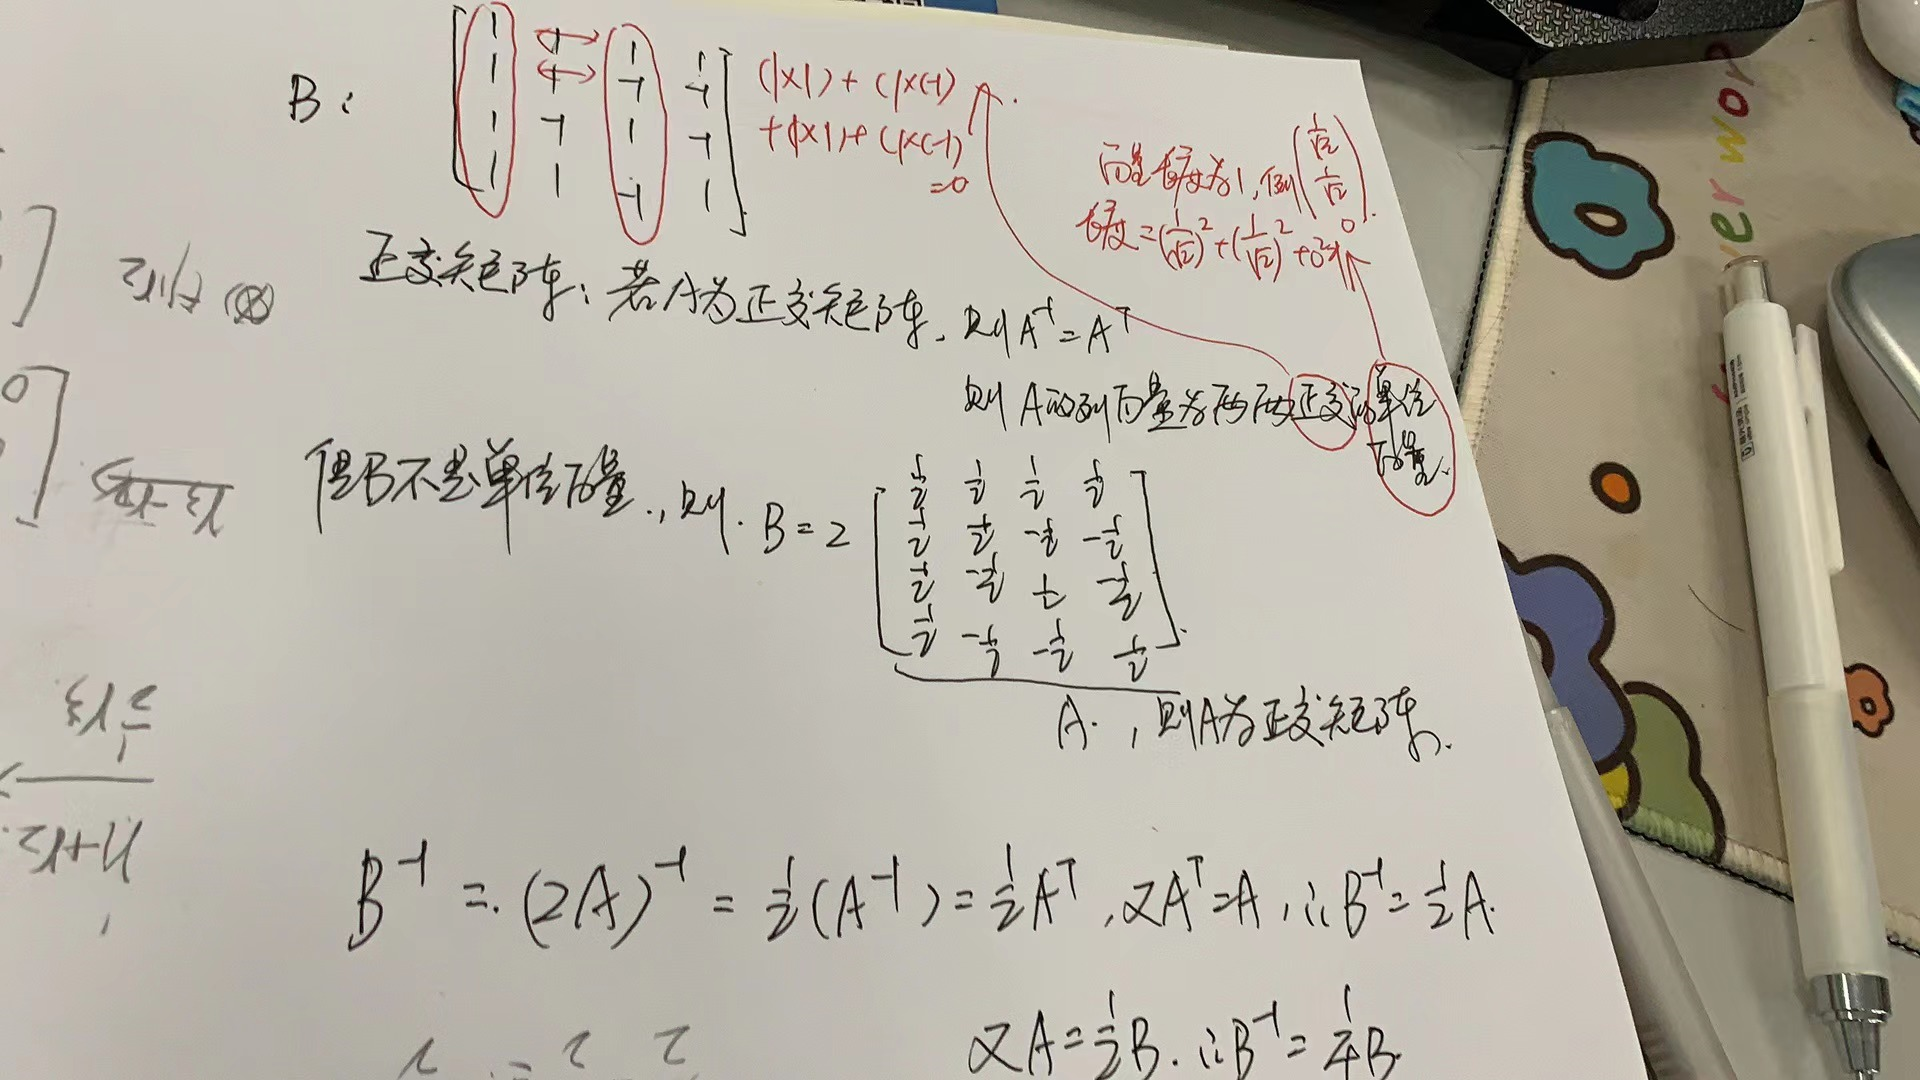 B: [ 1 1 1 1 (1×1)+(1×(-1)
1 1 -1 -1 +(1×1)+(1×(-1)
1 -1 1 -1 =0
1 1 -1 1 ]
向量长度为1,例(1/√2 1/√2 0).
长度=(1/√2)²+(1/√2)²+0²=1
正交矩阵:若A为正交矩阵,则A⁻¹=Aᵀ
则A的列向量为两两正交的单位
向量.
但B不是单位向量.,则. B=2 [ 1/2 1/2 1/2 1/2
1/2 1/2 -1/2 -1/2
1/2 -1/2 1/2 -1/2
1/2 -1/2 -1/2 1/2 ].
A. ,则A为正交矩阵.
B⁻¹=(2A)⁻¹=1/2(A⁻¹)=1/2Aᵀ,又Aᵀ=A,∴B⁻¹=1/2A.
又A=1/2B.∴B⁻¹=1/4B.
flower wor